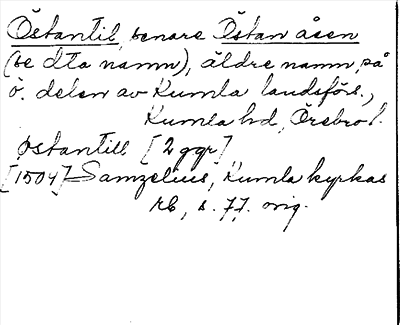 Östantil, benare Östan åsen
(se dta namn), äldre namn på
ö. delen av Kumla landsförs.,
Kumla hd, Örebro l.
östantill [2 ggr]
[1504] Samzelius, Kumla kyrkas
rb, s. 77. orig.